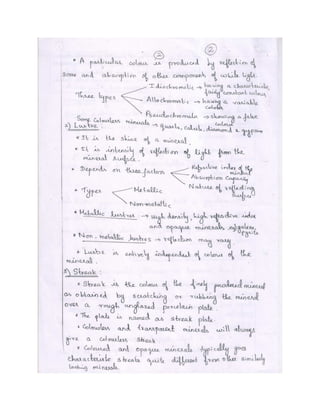 ②
②
• A particular colour is produced by reflection of
some and absorption of other components of white light.
Idiochromatic → having a characteristic,
fairly constant colour
Three types
Allochromatic → having a variable
colour
Pseudochromatic → showing a false
colour
Some Colourless minerals → quartz, calcite, diamond & gypsum
2) Lustre :
• It is the shine of a mineral.
• It is intensity of reflection of light from the
mineral surface.
• Depends on three factors
Refractive index of the
mineral
Absorption Capacity
Nature of reflecting
surface
• Types
Metallic
Non-metallic
• Metallic lustres → High density, high refractive index
and opaque minerals eg: galena,
pyrite
• Non-metallic lustres → reflection may vary
• Lustre is entirely independent of colour of the
mineral.
3) Streak :
• Streak is the colour of the finely powdered mineral
as obtained by scratching or rubbing the mineral
over a rough unglazed porcelain plate.
• The plate is named as streak plate.
• Colourless and transparent minerals will always
give a colourless streak
• Coloured and opaque minerals typically gives
characteristic streaks quite different from other similarly
looking minerals.